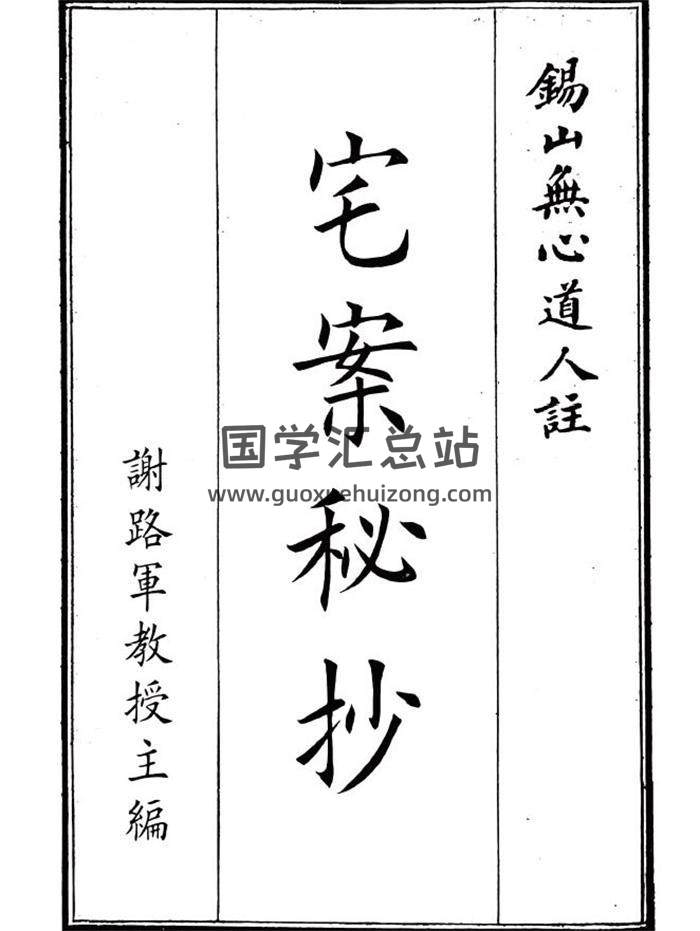 錫山無心道人註
宅案秘抄
謝路軍教授主編
国学汇总站
www.guoxuehuizong.com